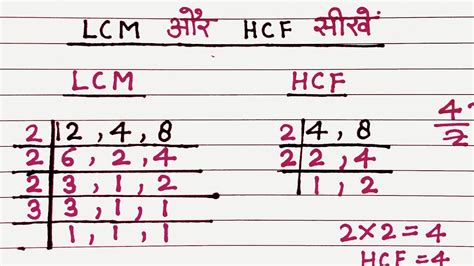 LCM और HCF सीखें
LCM HCF
2 12 , 4 , 8
2 6 , 2 , 4
2 3 , 1 , 2
3 3 , 1 , 1
1 , 1 , 1
2 4 , 8
2 2 , 4
1 , 2
4
2
2×2=4
HCF=4